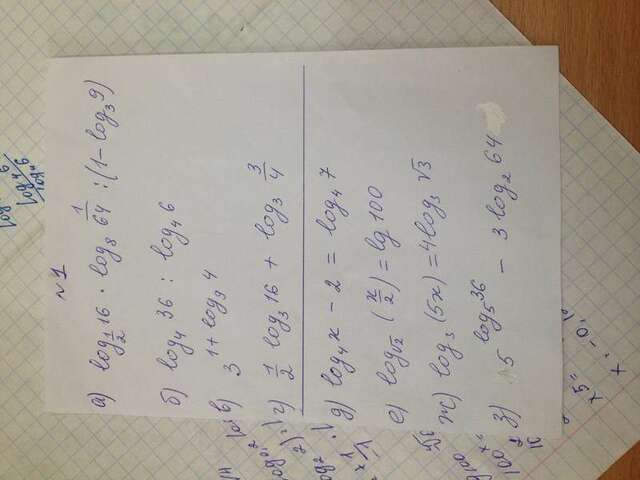 log₄6
log₄6
N1
а) log_{1/2} 16 · log₈ 1/64 : (1 - log₃ 9)
б) log₄ 36 : log₄ 6
в) 3^{1 + log₉ 4}
г) 1/2 log₃ 16 + log₃ 3/4
д) log₄ x - 2 = log₄ 7
е) log_{√2} (x/2) = lg 100
ж) log₃ (5x) = 4log₃ √3
з) 5^{log₅ 36} - 3 log₂ 64
100ˣ =
x5 =